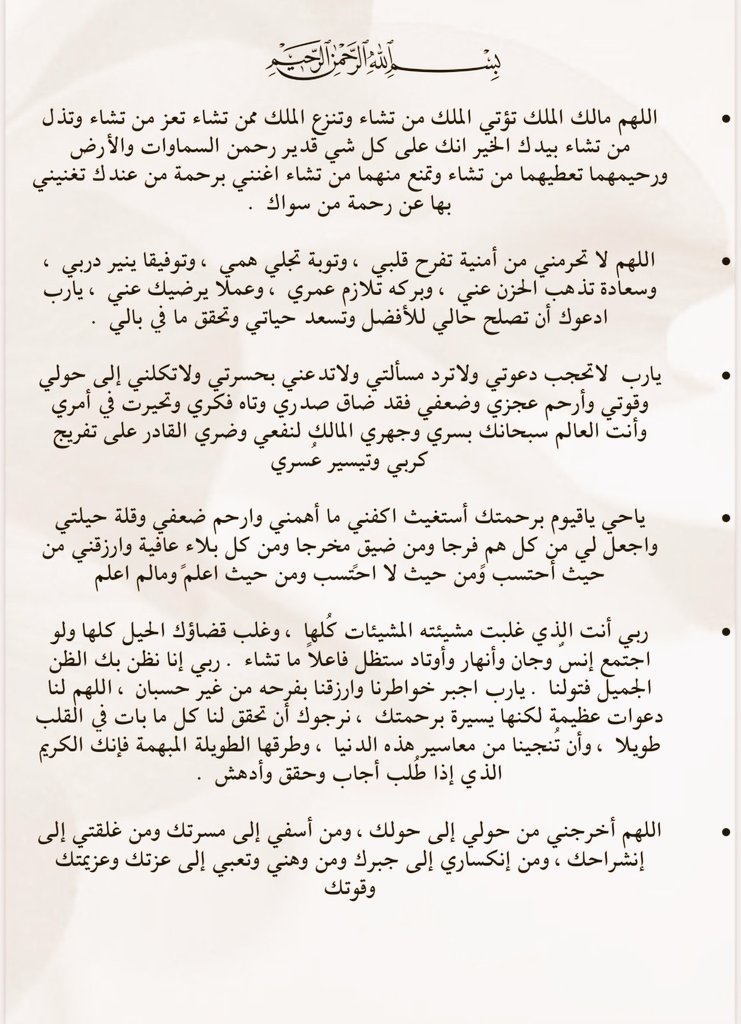 بِسْمِ اللَّهِ الرَّحْمَٰنِ الرَّحِيمِ
• اللهم مالك الملك تؤتي الملك من تشاء وتنزع الملك ممن تشاء تعز من تشاء وتذل
من تشاء بيدك الخير انك على كل شي قدير رحمن السماوات والأرض
ورحيمهما تعطيهما من تشاء وتمنع منهما من تشاء اغنني برحمة من عندك تغنيني
بها عن رحمة من سواك .
• اللهم لا تحرمني من أمنية تفرح قلبي ، وتوبة تجلي همي ، وتوفيقا ينير دربي ،
وسعادة تذهب الحزن عني ، وبركه تلازم عمري ، وعملا يرضيك عني ، يارب
ادعوك أن تصلح حالي للأفضل وتسعد حياتي وتحقق ما في بالي .
• يارب لاتحجب دعوتي ولاترد مسألتي ولاتدعني بحسرتي ولاتكلني إلى حولي
وقوتي وأرحم عجزي وضعفي فقد ضاق صدري وتاه فكري وتحيرت في أمري
وأنت العالم سبحانك بسري وجهري المالك لنفعي وضري القادر على تفريج
كربي وتيسير عُسري
• ياحي ياقيوم برحمتك أستغيث اكفني ما أهمني وارحم ضعفي وقلة حيلتي
واجعل لي من كل هم فرجا ومن ضيق مخرجا ومن كل بلاء عافية وارزقني من
حيث أحتسب ومن حيث لا احتسب ومن حيث اعلم ومالم اعلم
• ربي أنت الذي غلبت مشيئته المشيئات كُلها ، وغلب قضاؤك الحيل كلها ولو
اجتمع إنسٍ وجان وأنهار وأوتاد ستظل فاعلاً ما تشاء . ربي إنا نظن بك الظن
الجميل فتولنا . يارب اجبر خواطرنا وارزقنا بفرحه من غير حسبان ، اللهم لنا
دعوات عظيمة لكنها يسيرة برحمتك ، نرجوك أن تحقق لنا كل ما بات في القلب
طويلا ، وأن تُنجينا من معاسير هذه الدنيا ، وطرقها الطويلة المبهمة فإنك الكريم
الذي إذا طُلب أجاب وحقق وأدهش .
• اللهم أخرجني من حولي إلى حولك ، ومن أسفي إلى مسرتك ومن غلقتي إلى
إنشراحك ، ومن إنكساري إلى جبرك ومن وهني وتعبي إلى عزتك وعزيمتك
وقوتك